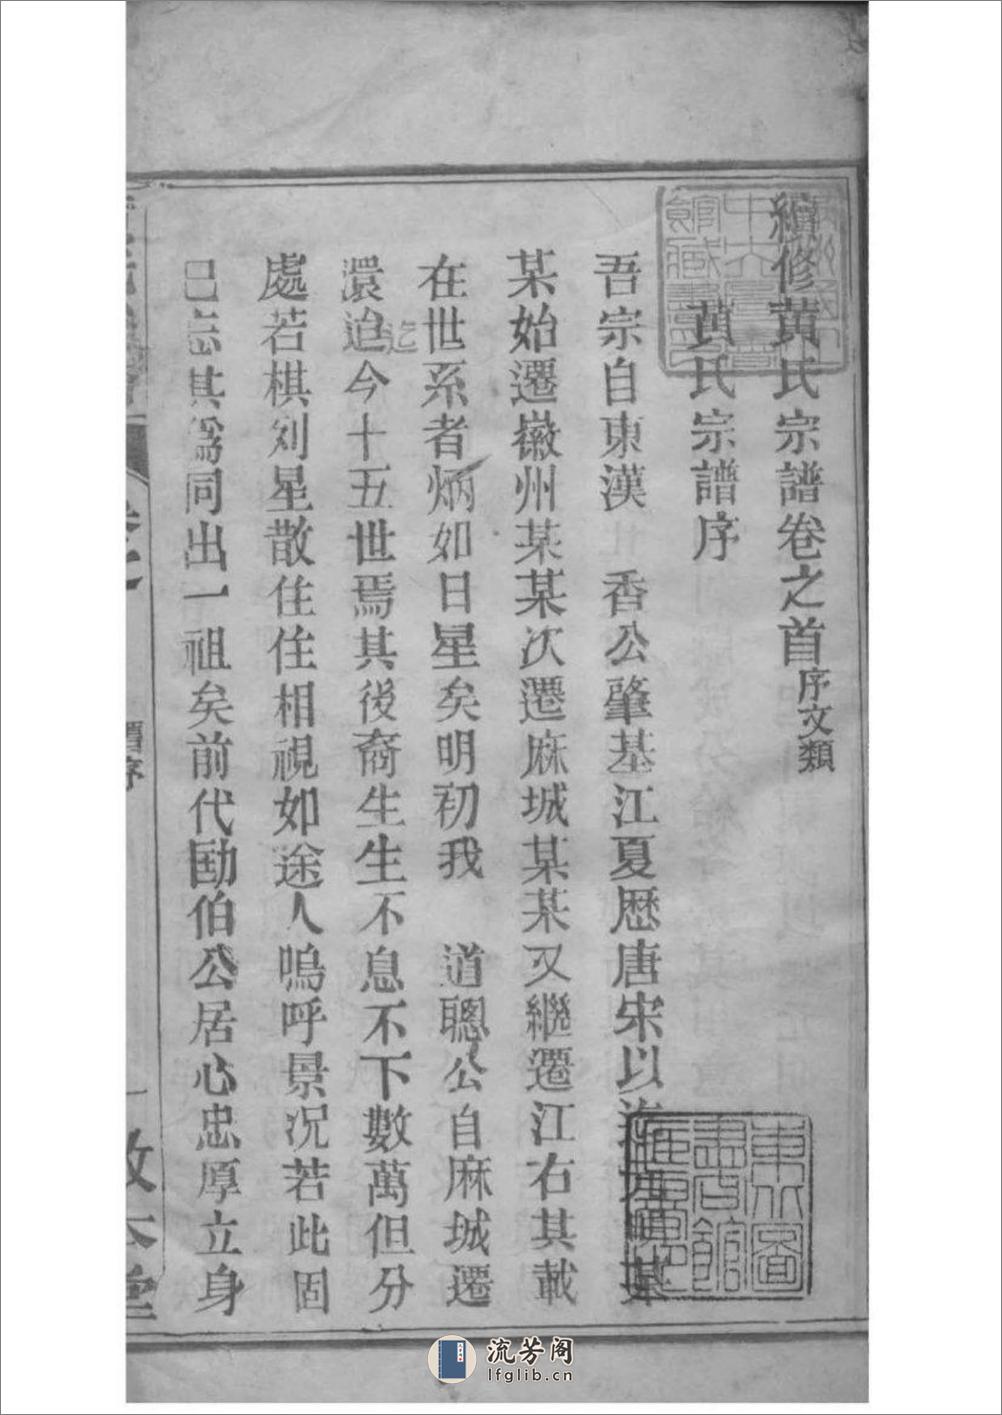 續修黃氏宗譜卷之首序文類
黃氏宗譜序
吾宗自東漢 香公肇基江夏歷唐宋以
某始遷徽州某某次遷麻城某某又繼遷江右其載
在世系者炳如日星矣明初我 道聰公自麻城遷
澴迨今十五世焉其後裔生生不息不下數萬但分
處若棋列星散住住相視如途人嗚呼景況若此固
已忘其爲同出一祖矣前代勖伯公居心忠厚立身
卷之
舊序
一 敦本堂
東北圖書館
流芳阁
lfglib.cn